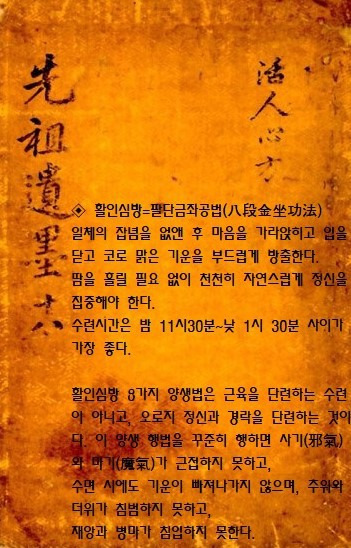 活人心方
先祖遺墨十八
◈ 활인심방=팔단금좌공법(八段金坐功法)
일체의 잡념을 없앤 후 마음을 가라앉히고 입을
닫고 코로 맑은 기운을 부드럽게 방출한다.
땀을 흘릴 필요 없이 천천히 자연스럽게 정신을
집중해야 한다.
수련시간은 밤 11시30분~낮 1시 30분 사이가
가장 좋다.
활인심방 8가지 양생법은 근육을 단련하는 수련
이 아니고, 오로지 정신과 경락을 단련하는 것이
다. 이 양생 행법을 꾸준히 행하면 사기(邪氣)
와 마기(魔氣)가 근접하지 못하고,
수면 시에도 기운이 빠져나가지 않으며, 추위와
더위가 침범하지 못하고,
재앙과 병마가 침입하지 못한다.